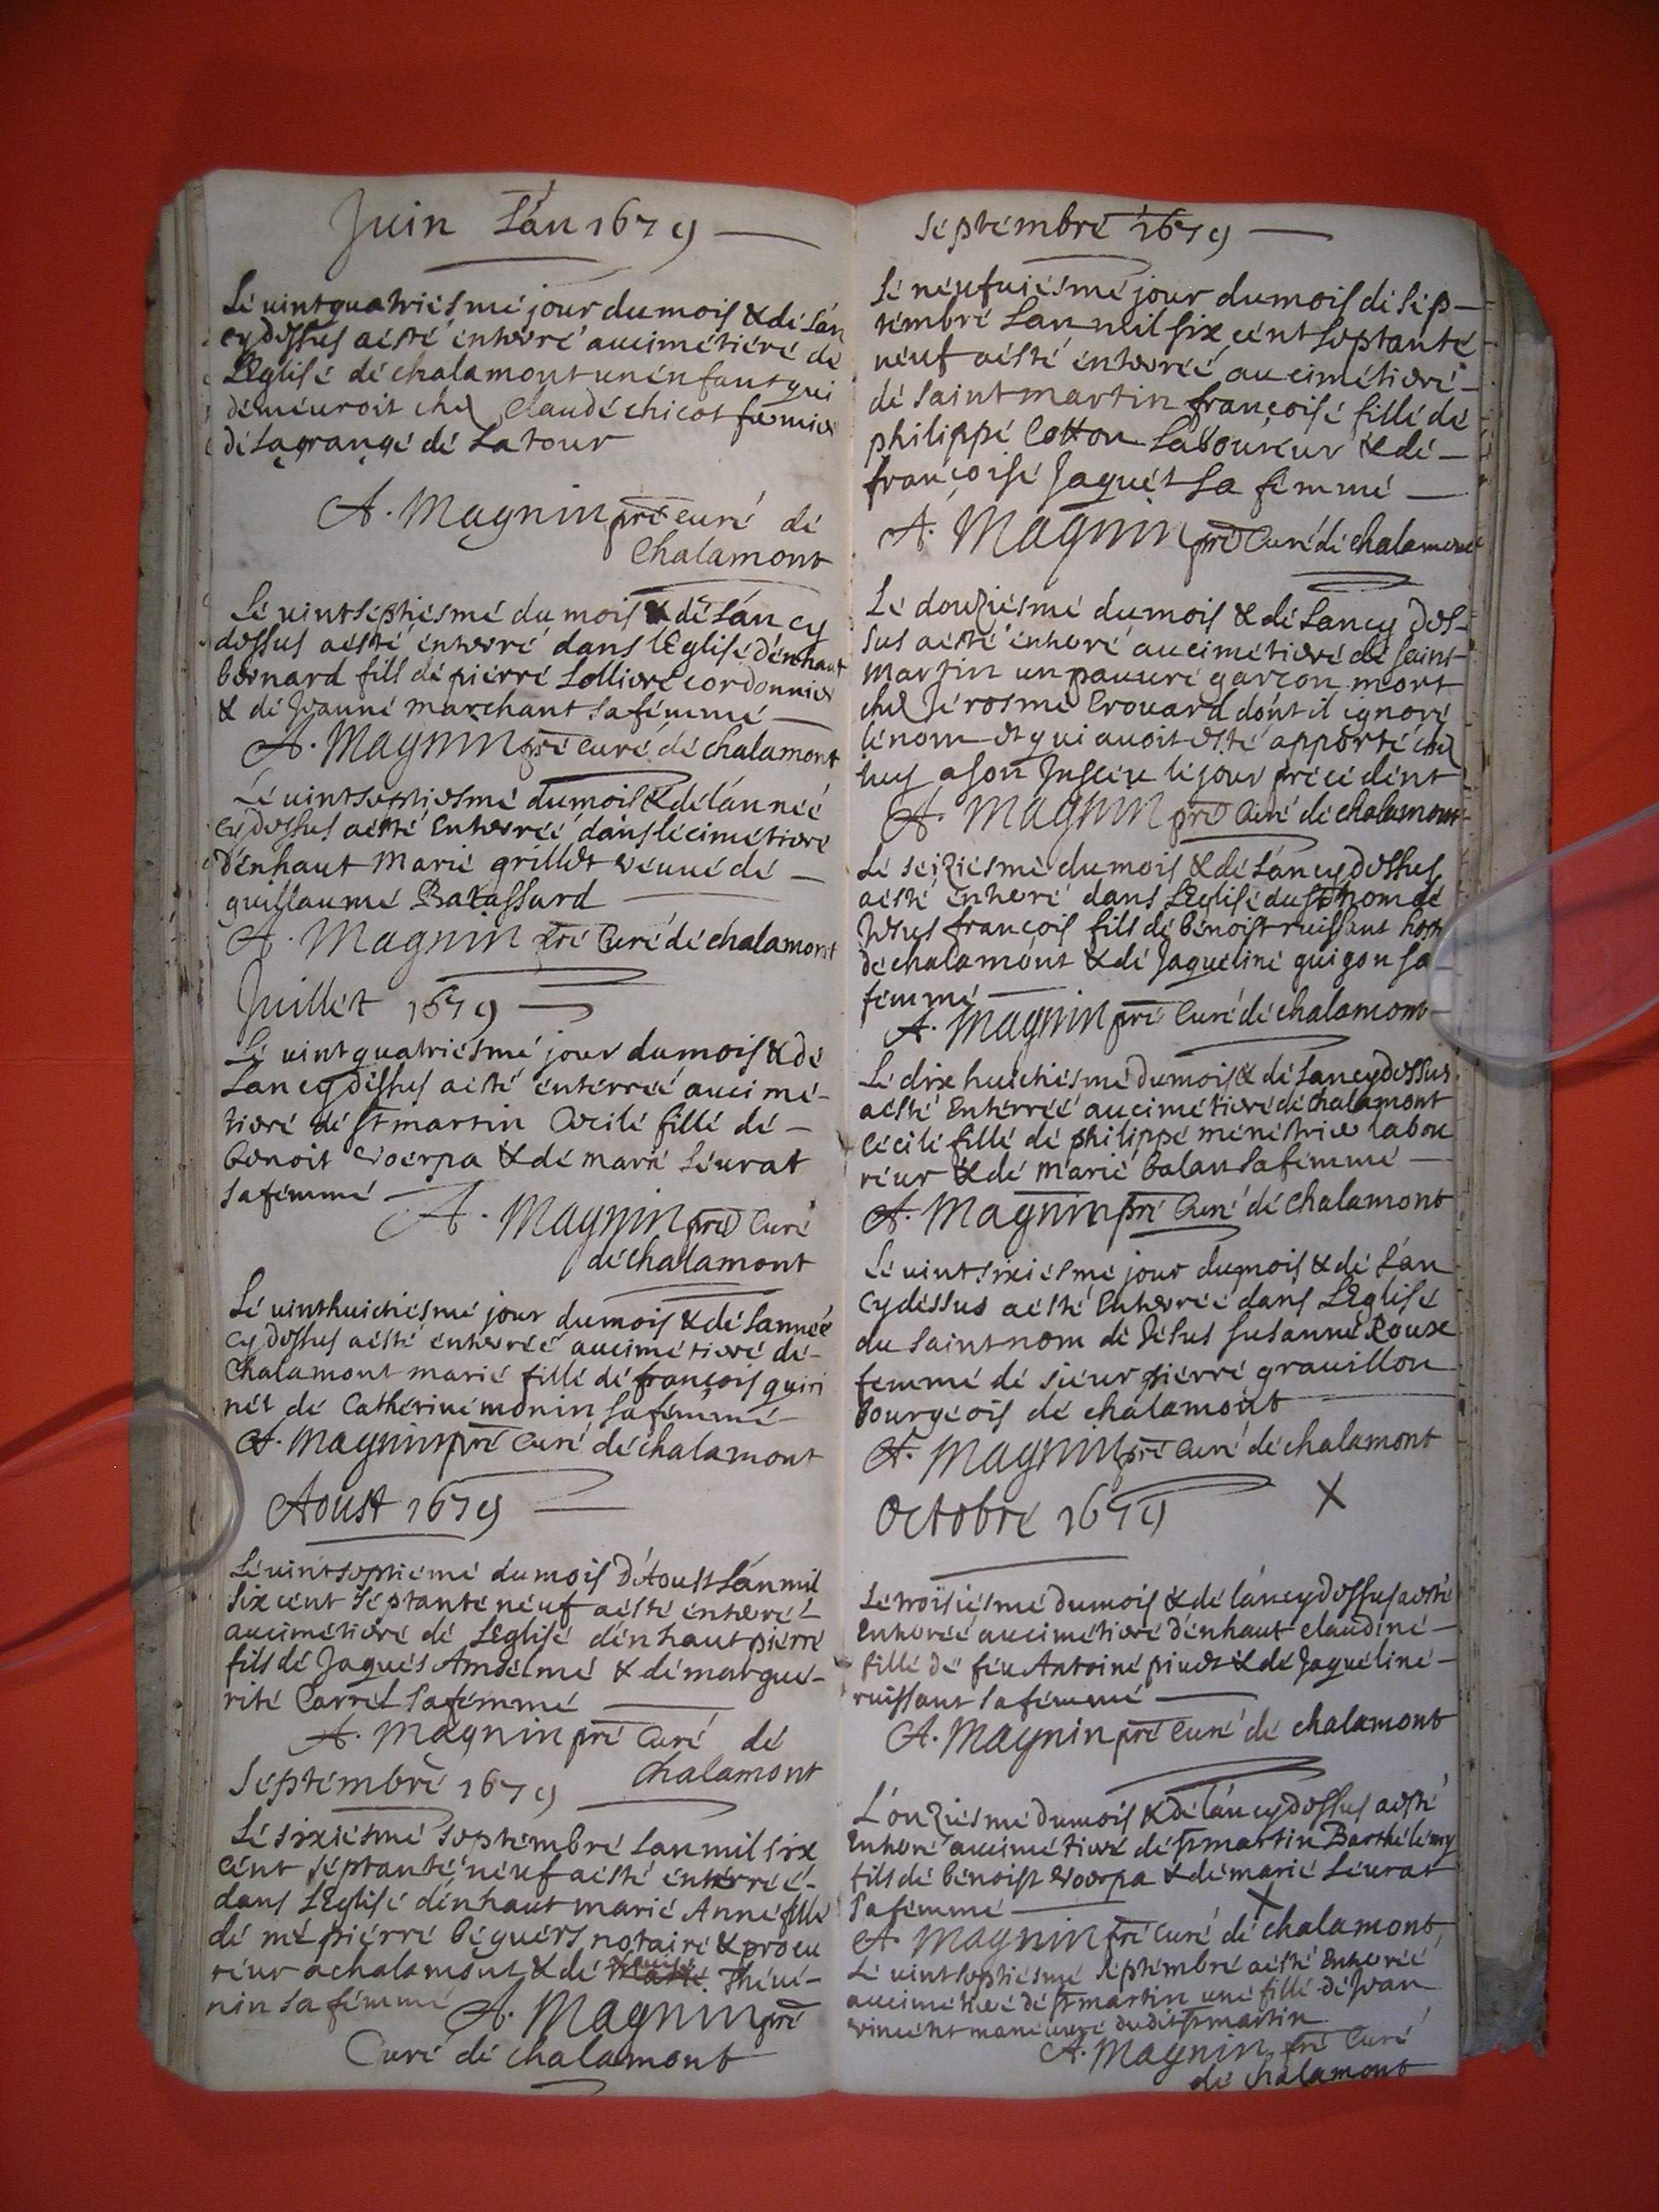 Juin L'an 1679
Lé vintquatriésmé jour du mois & dé L'an
cydessus a ésté énterré au cimétiéré dé
L'Eglisé dé chalamont un énfant qui
déméuroit chez Claudé chicot fermier
dé la grangé dé La tour
A. Magnin pré curé dé
Chalamont
Lé vintséptiésmé du mois & dé L'an cy
dessus a ésté énterré dans l'Eglisé d'énhaut
bernard fils dé piérré Lolliere cordonnier
& dé Jeanné marchant sa fémmé
A. Magnin pré Curé dé chalamont
Lé vintseptiesmé du mois & dé l'annéé
cydessus a ésté Enterréé dans lé cimétiere
d'énhaut Marié grillet veuvé dé
guillaumé Batassard
A. Magnin pré Curé dé chalamont
Juillét 1679
Lé vintquatriésmé jour du mois & dé
L'an cydéssus a ésté éntérréé au cimé-
tieré dé st martin Cécilé fillé dé
Benoit Voerpa & dé marié Léurat
sa fémmé
A. Magnin pré Curé
dé chalamont
Lé vinthuictiésmé jour du mois & dé L'annéé
cydessus a ésté énterréé au cimétieré dé
Chalamont marié fillé dé françois guiri
nét dé Cathériné monin sa fémmé
A. Magnin pré Curé dé chalamont
Aoust 1679
Lé vintseptiémé du mois d'Aoust L'an mil
six cént séptanté néuf a ésté énterré
au cimétieré dé L'Eglisé d'énhaut piérré
fils dé Jaqués Amdélmé & dé margué-
rité Carrél sa fémmé
A. Magnin pré Curé dé
Chalamont
Séptémbré 1679
Lé sixiésmé septémbré L'an mil six
cént séptanté néuf a ésté énterréé
dans L'Eglisé d'énhaut marié Anné fillé
dé mé piérré béguérs notairé & procu
réur a chalamont & dé Théué-
nin sa fémmé
A. Magnin pré
Curé dé chalamont
séptémbré 1679
Lé néufuiésmé jour du mois dé sép-
témbré L'an mil six cént séptanté
néuf a ésté énterréé au cimétieré
dé saint martin françoisé fillé dé
philippé Cotton Laboureur & dé
françoisé Jaquét sa fémmé
A. Magnin pré Curé dé chalamont
Lé douziésmé du mois & dé L'an cy des-
sus a ésté énterré au cimétieré dé saint
Martin un pauuré garçon mort
chez Jérosmé Erouard dont il ignoré
lé nom et qui auoit esté apporté chez
luy a son Insceu lé jour précédént
A. Magnin pré Curé dé chalamont
Lé séiziésmé du mois & dé L'an cydessus
a ésté énterré dans L'Eglisé du st nom dé
Jesus françois fils dé bénoist ruissant hoste
dé chalamont & dé Jaquéliné guigon sa
fémmé
A. Magnin pré Curé dé chalamont
Lé dix huictiésmé du mois & dé L'an cydessus
a ésté Entérréé au cimétieré dé chalamont
Cécilé fillé dé philippé ménéstrier labou
réur & dé Marié balan sa fémmé
A. Magnin pré Curé dé chalamont
Lé vintsixiésmé jour du mois & dé L'an
Cydéssus a ésté Enterréé dans L'Eglisé
du saint nom dé Jésus susanné Roux
femmé dé siéur piérré grauillon
bourgéois dé chalamont
A. Magnin pré Curé dé chalamont
Octobré 1679
Lé troisiésmé du mois & dé l'an cydessus a esté
Enterréé au cimétieré d'énhaut claudiné
fillé dé féu Antoiné piuet & dé Jaquéliné
ruissant sa fémmé
A. Magnin pré Curé dé chalamont
L'onziésmé du mois & dé l'an cydessus a esté
Enterré au cimétieré dé st martin Barthélémy
fils dé bénoist Voerpa & dé marié Léurat
sa fémmé
A. Magnin pré Curé dé chalamont
Lé vintseptiésmé séptémbré a ésté Enterréé
au cimétieré dé st martin uné fillé dé Jean
vincént manéuuré dudit st martin
A. Magnin pré Curé
dé chalamont